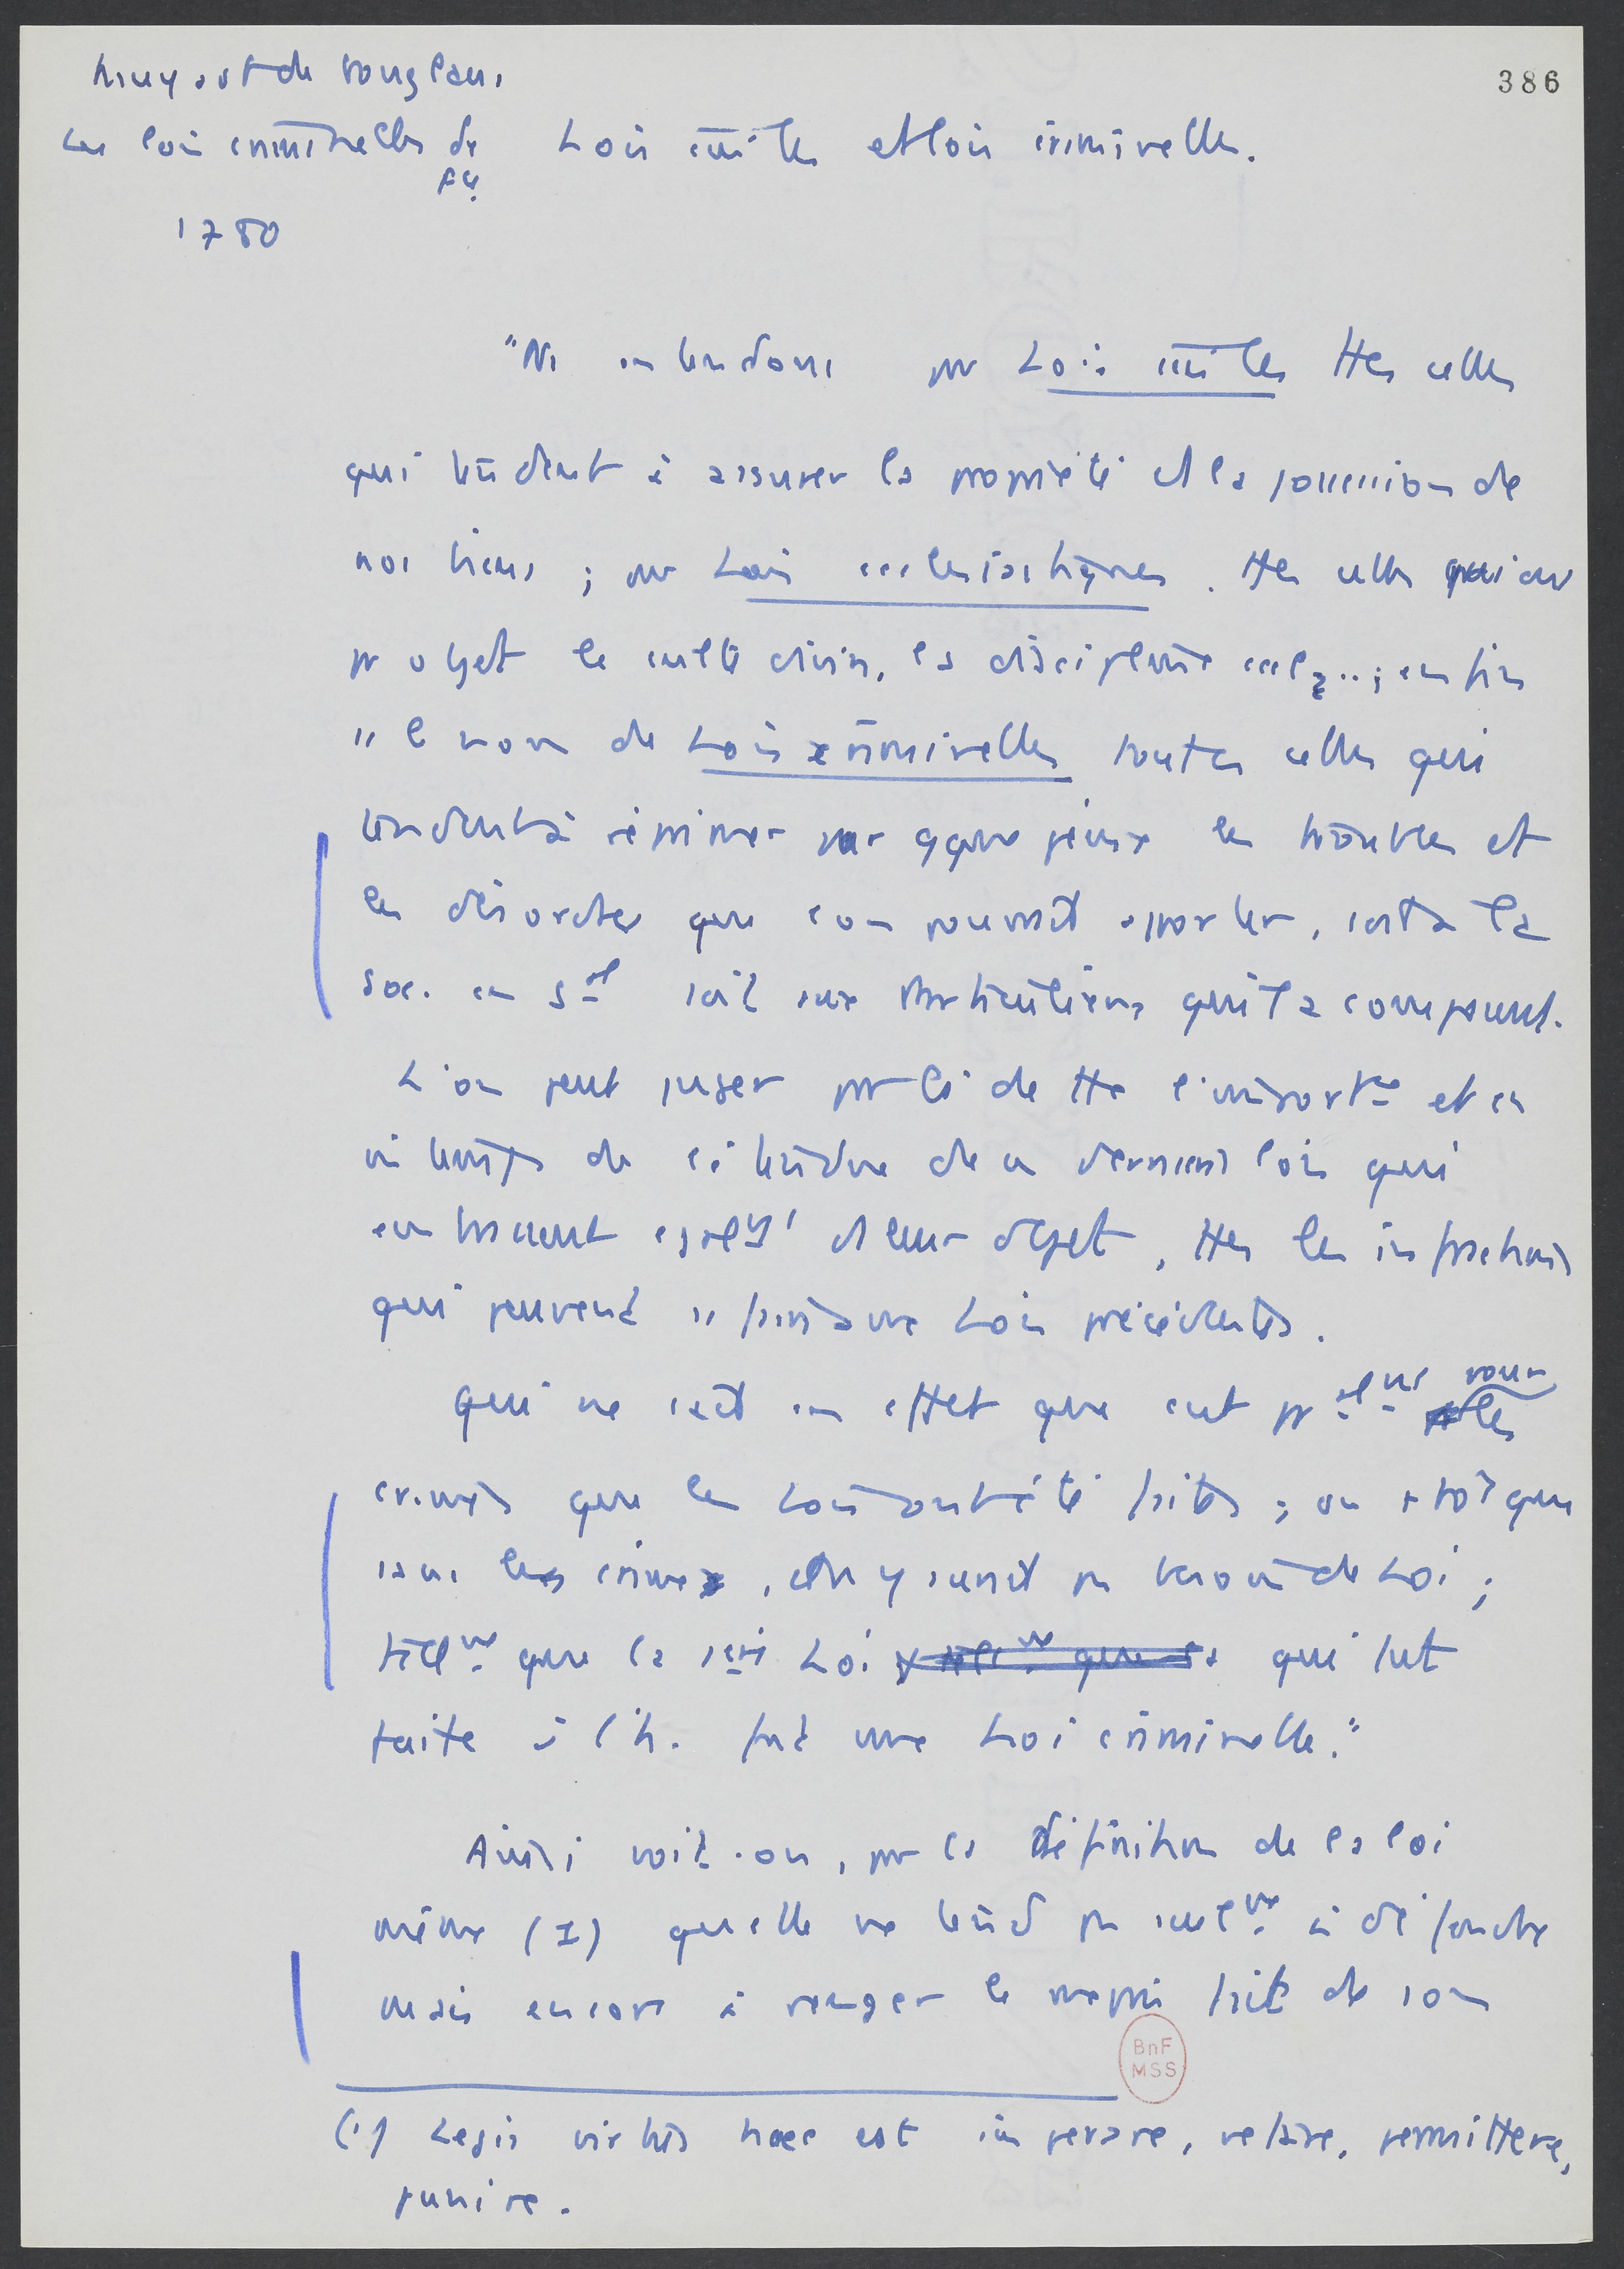 Muyart de Vouglans
Les lois criminelles de
Fce.
386
Lois civiles et lois criminelles.
1780
"Ns entendons par Lois civiles ttes celles
qui tendent à assurer la propriété et la possession de
nos biens ; par Lois ecclésiastiques. ttes celles qui ont
pr objet le culte divin, la discipline eccl... ; enfin
ss le nom de Lois criminelles toutes celles qui
tendent à réprimer par qque peine les troubles et
les désordres que l'on pourrait apporter, soit à la
soc. en gal soit aux particuliers qui la composent.
L'on peut juger par là de tte l'importce et en
mê temps de l'étendue de ces dernières lois qui
embrassent égalt ds leur objet, ttes les infractions
qui peuvent ss faire aux Lois précédentes.
Qui ne sait en effet que c'est pr les
crimes que les Lois ont été faites ; ou + tôt que
sans les crimes, on n'y aurait pas besoin de Loi ;
tellmt que la 1ère Loi qui fut
faite à l'h. fut une Loi criminelle."
Ainsi voit-on, par la définition de la loi
même (1) qu'elle ne tend pas seulmt à défendre
mais encore à venger le mépris fait de son
BnF
MSS
(1) Legis virtus haec est imperare, vetare, permittere,
punire.